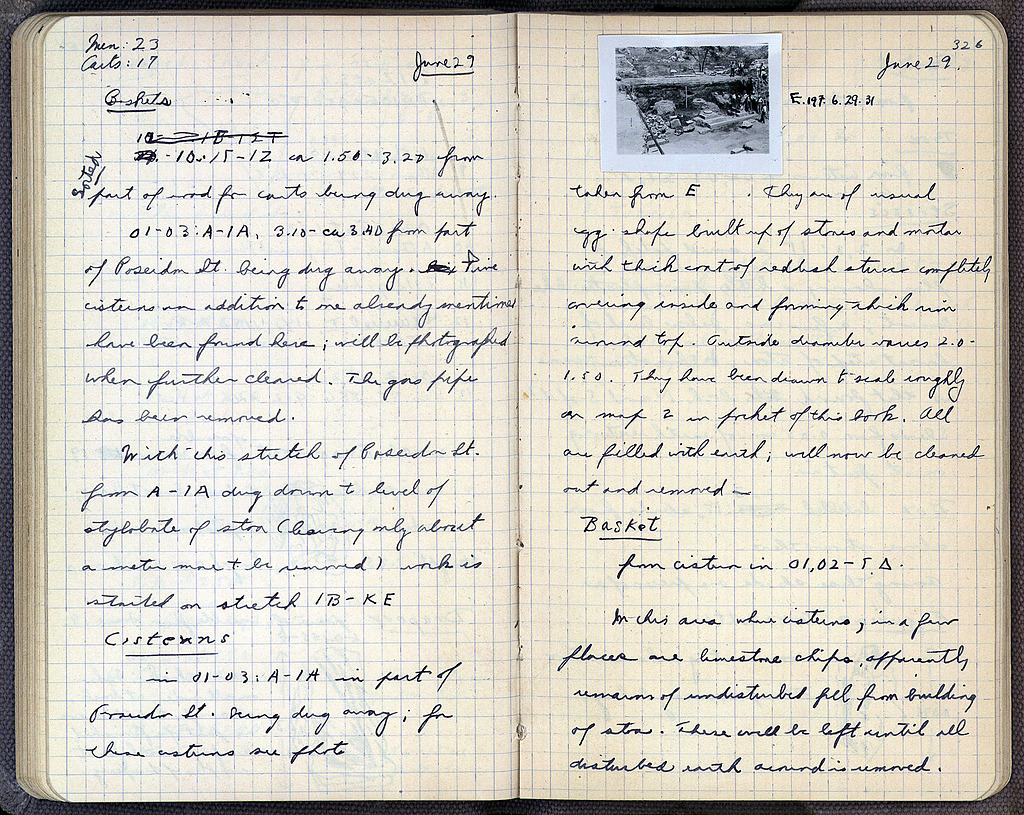 Men: 23
Carts: 17
June 29
Baskets
Sorted
10:15-12 ca 1.50-3.20 from
part of road for carts being dug away.
01-03: A-1A, 3.10-ca 3.40 from part
of Poseidon St. being dug away. Five
cisterns in addition to one already mentioned
have been found here; will be photographed
when further cleared. The gas pipe
has been removed.
With this stretch of Poseidon St.
from A-1A dug down to level of
stylobate of stoa (leaving only about
a meter more to be removed) work is
started on stretch 1B-KE
Cisterns
in 01-03: A-1A in part of
Poseidon St. being dug away; for
these cisterns see photo
326
June 29.
E.197. 6.29.31
taken from E. They are of usual
egg-shape built up of stones and mortar
with thick coat of reddish stucco completely
covering inside and forming thick rim
around top. Outside diameter varies 2.0-
1.50. They have been drawn to scale roughly
on map 2 in pocket of this book. All
are filled with earth; will now be cleaned
out and removed —
Basket
from cistern in 01,02-
In this area where cisterns, in a few
places are limestone chips, apparently
remains of undisturbed fill from building
of stoa. These will be left until all
disturbed earth around is removed.